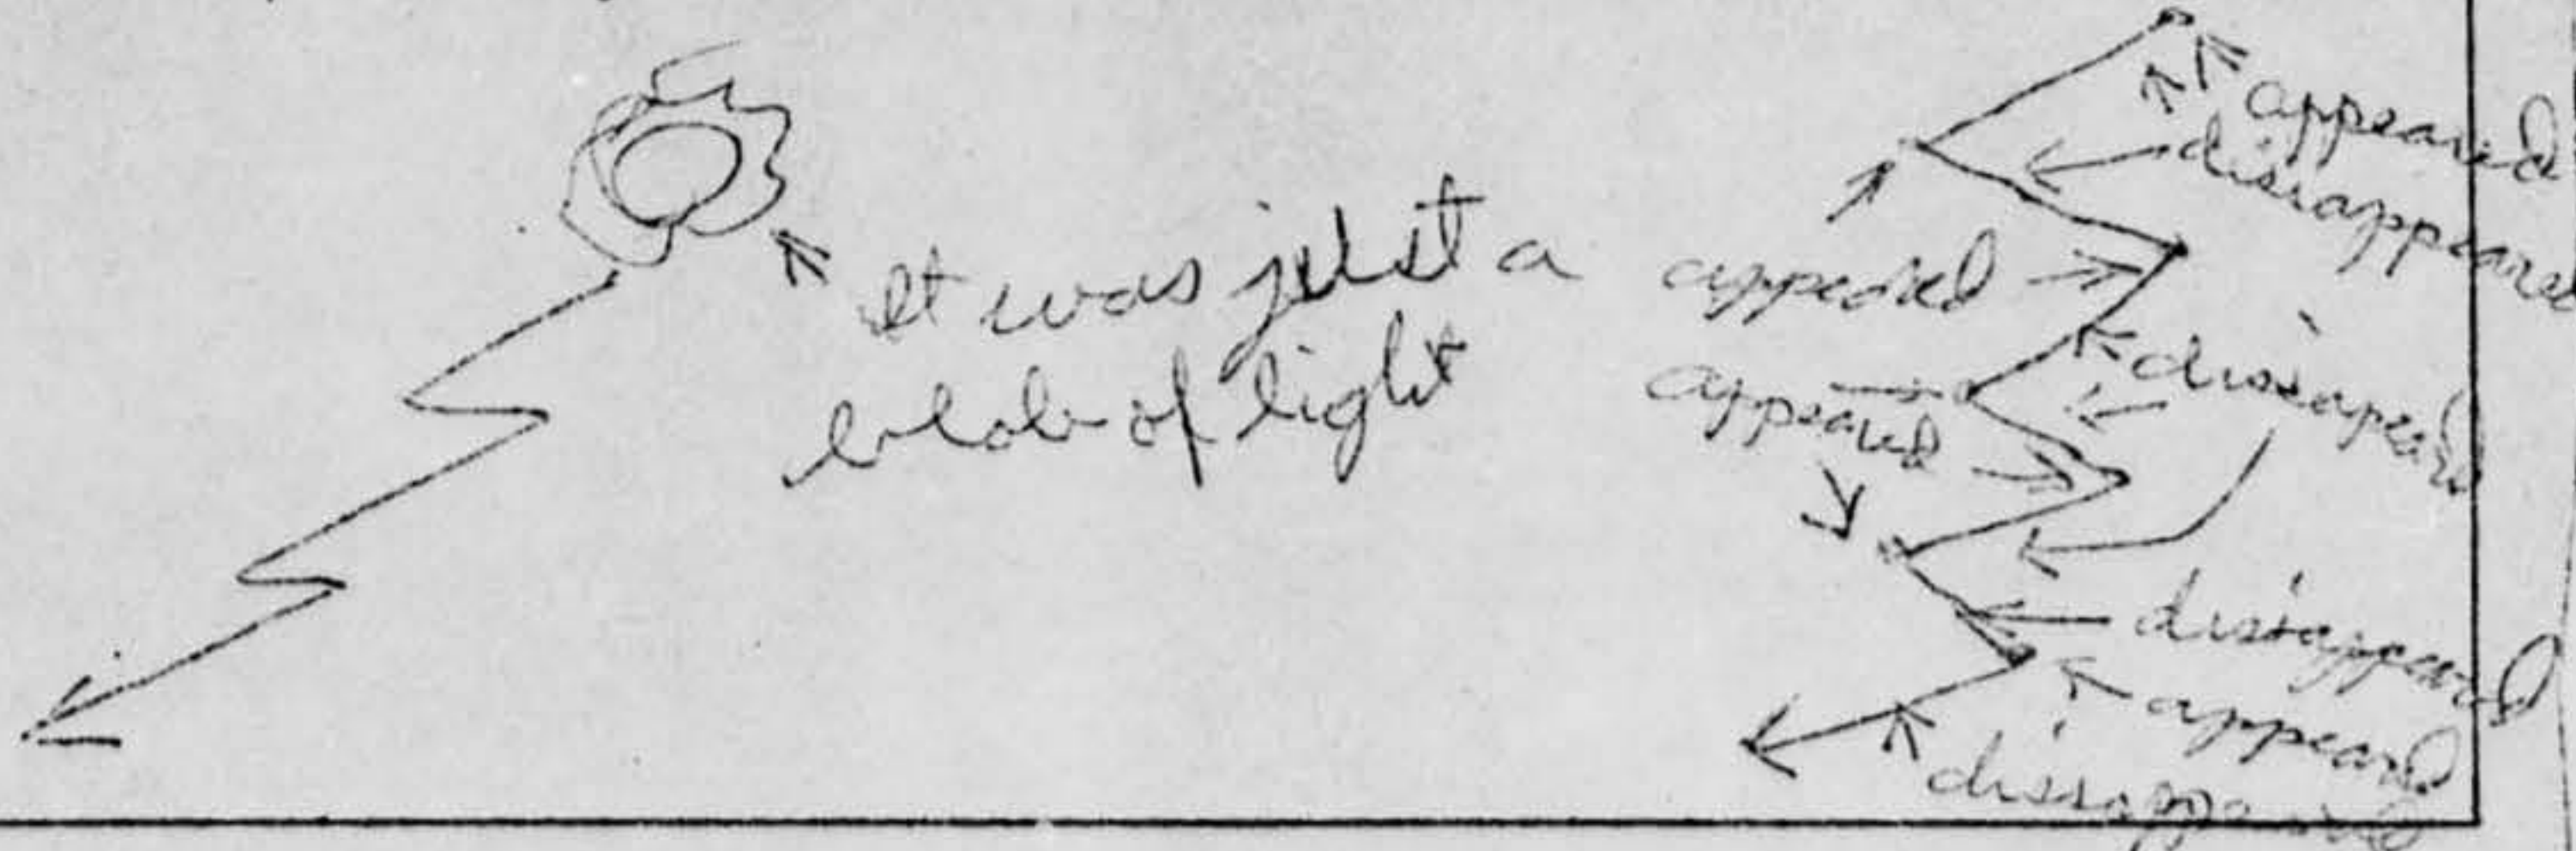 It was just a
blob of light
appeared
disappeared
appeared
dissapeard
appeared
disappeared
appeard
dissappeared